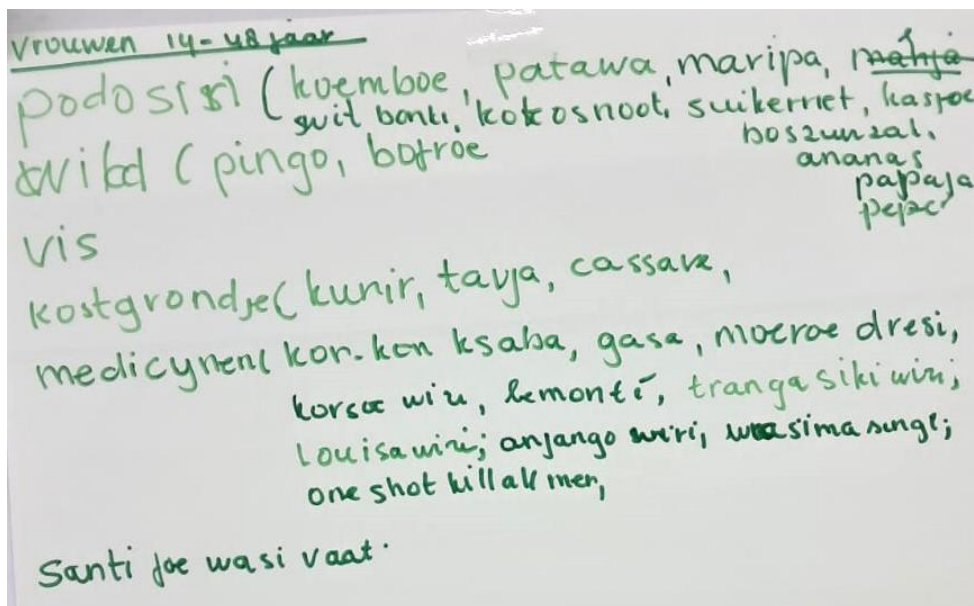 Vrouwen 14-48 jaar
podosiri ( koemboe, patawa, maripa, manja
swit bonki, kokosnoot, suikerriet, kasjoe
boszunzal,
wild ( pingo, bofroe
ananas
papaja
pepe
vis
kostgrondje( kunir, tayja, cassave,
medicynen( kon-kon ksaba, gasa, moeroe dresi,
korsoe wiri, lemonti, tranga siki wiri,
Louisa wiri; anjango wiri, wasima singi;
one shot kill all men,
Santi foe wasi vaat.